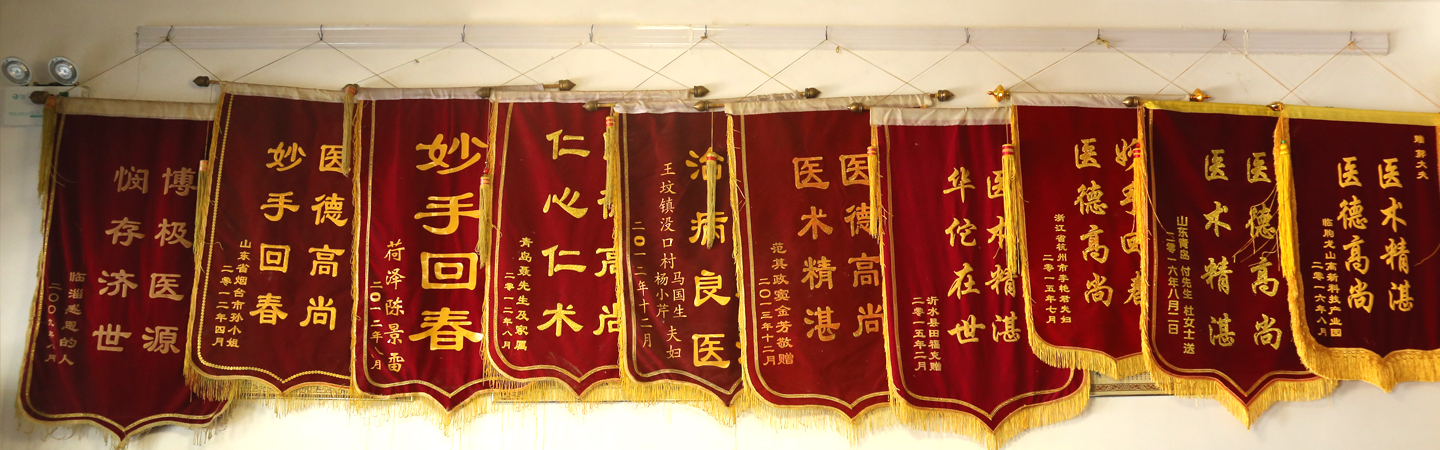 博极医源
悯存济世
临淄感恩的人
二〇〇九年八月
医德高尚
妙手回春
山东省烟台市孙小姐
二零一二年四月
妙手回春
荷泽陈景雷
二〇一二年八月
仁心仁术
青岛聂先生及家属
二零一二年八月
治病良医
王坟镇没口村马国生 夫妇
杨小芹
二〇一二年十二月
医德高尚
医术精湛
范其政窦金芳敬赠
二〇一三年十二月
医术精湛
华佗在世
沂水县田福克赠
二零一五年二月
妙手回春
医德高尚
浙江省杭州市李艳君夫妇
二零一五年七月
医德高尚
医术精湛
山东青岛 付先生 杜女士送
二零一六年八月二日
医术精湛
医德高尚
临朐龙山高新科技产业园
二零一六年八月